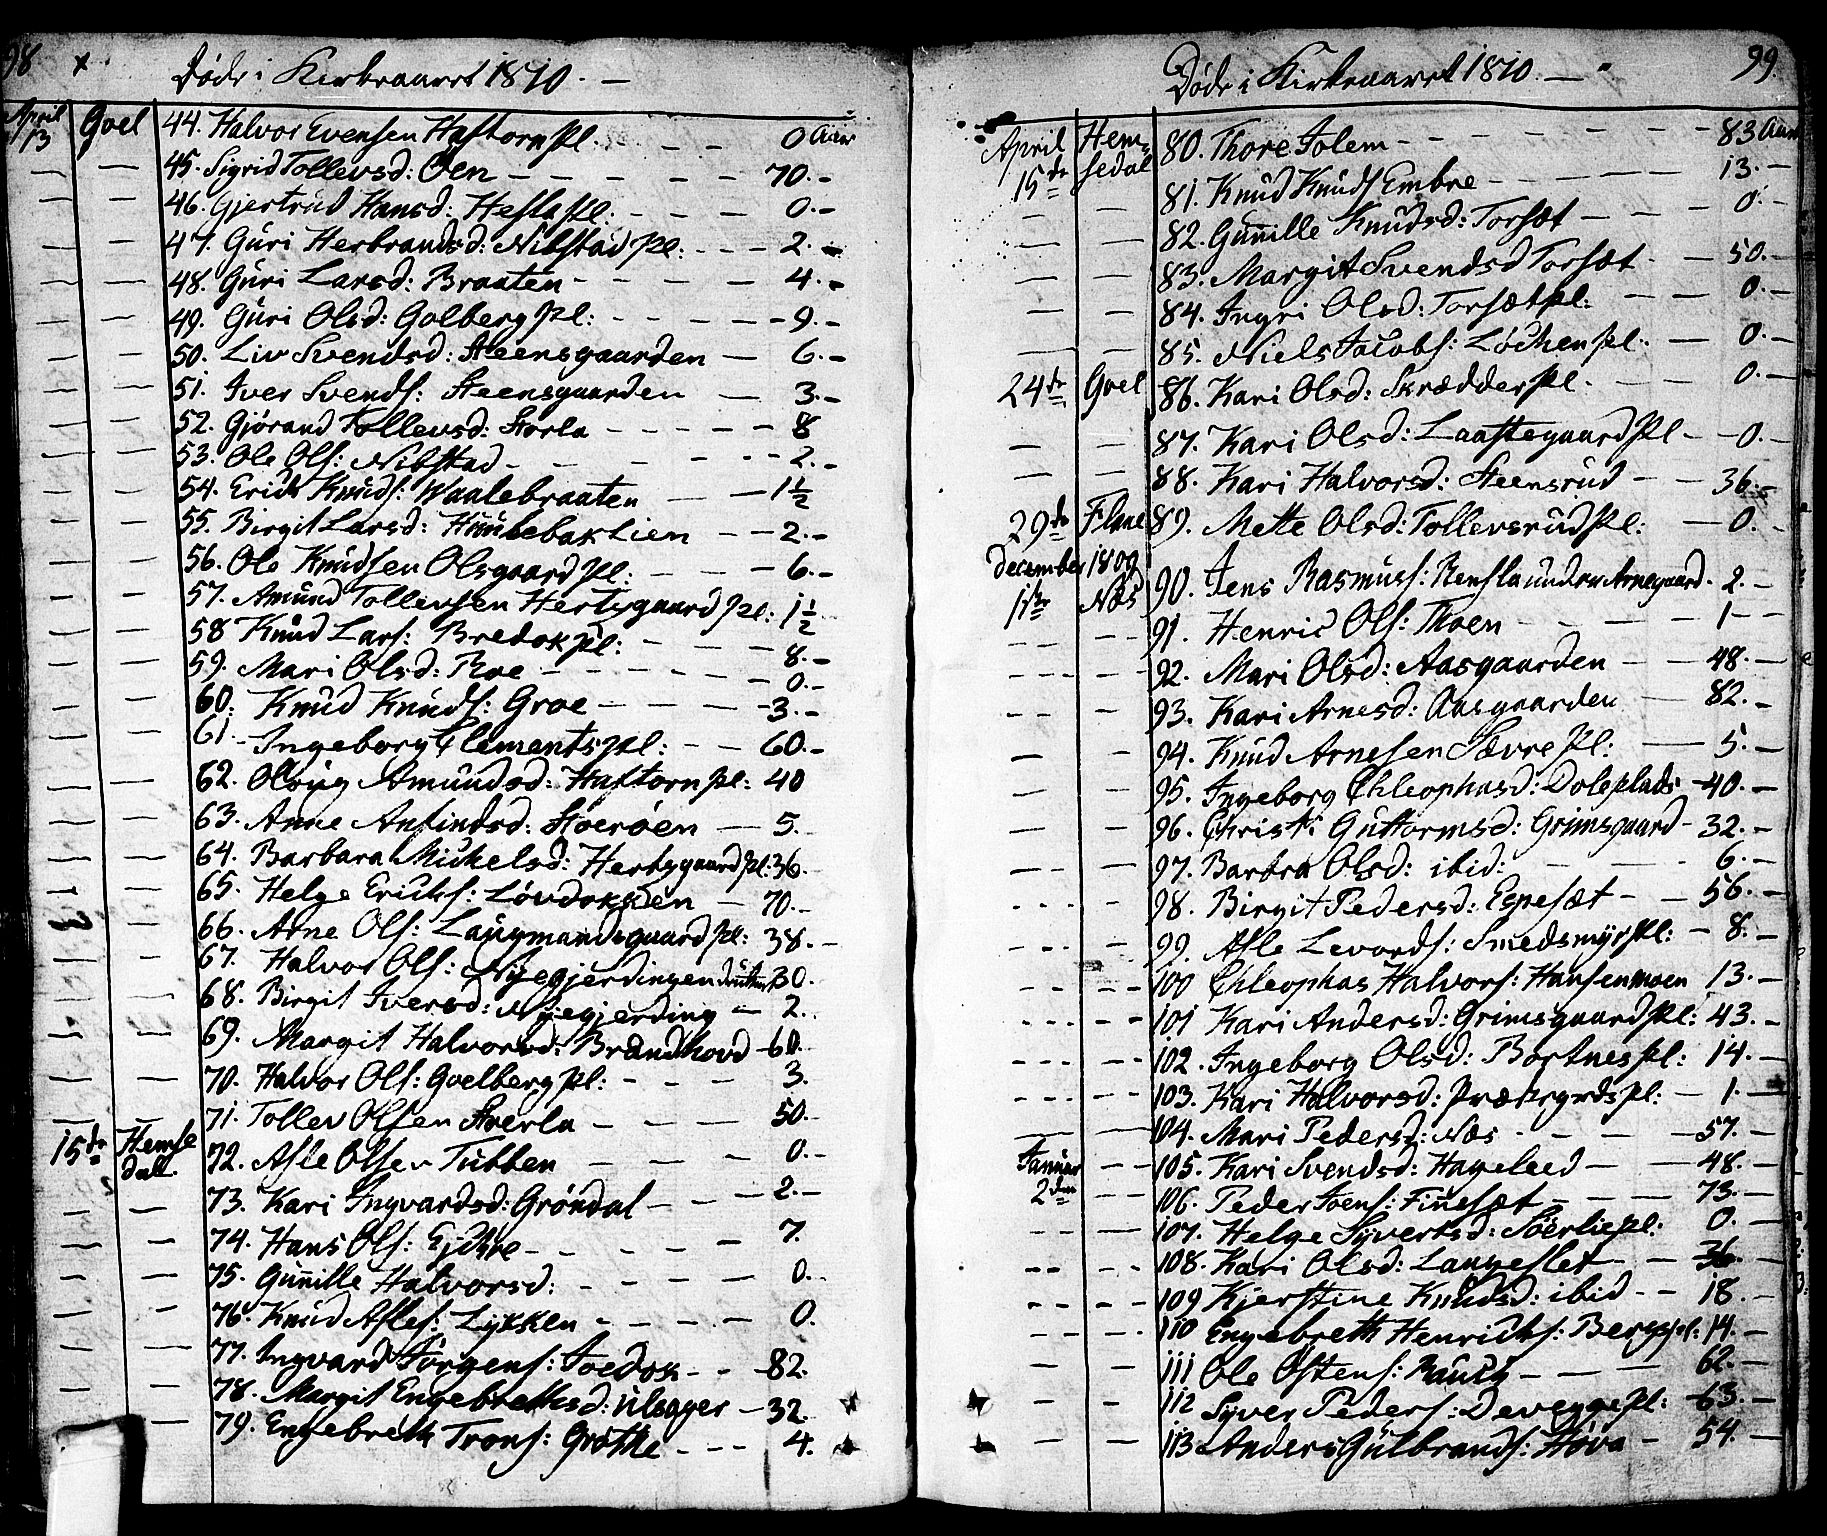 98 x Døde i Kirkeaaret 1810. —
April 13 Goel 44. Halvor Evensen Haftorn pl. — — 0 Aar
45. Sigrid Tollevsd: Oen — — — 70. -
46. Gjertrud Hansd: Hesla pl: — — — 0. -
47. Guri Herbrandsd: Nibstad pl: — — 2. -
48. Guri Larsd: Braaten — — — 4. -
49. Guri Olsd: Golberg pl: — — — 9. -
50. Liv Svendsd: Steensgaarden — 6. -
51. Iver Svends: Steensgaarden — 3. -
52. Gjørand Tollevsd: Storla — — — 8
53. Ole Ols: Nibstad — — — 2. -
54. Erich Knuds: Waalebraaten — — 1 1/2
55. Birgit Larsd: — — 2. -
56. Ole Knudsen Olsgaard pl: — — 6. -
57. Amund Tollevsen Hertsgaard pl: 1 1/2
58 Knud Lars: Bredok pl: — — — 8. -
59. Mari Olsd: Roe — — — 0. -
60. Knud Knuds: Groe — — — 3. -
61. Ingeborg Clements pl: — — 60. -
62. Olaug Amundsd: Haftorn pl: 40
63. Anne Anfindsd: Støerøen — 5.
64. Barbara Michelsd: Hertsgaard pl: 36.
65. Helge Erichs: Løvdokseen — 70. -
66. Arne Ols: Laugmandsgaard pl: 38. -
67. Halvor Ols: Nÿegjerdingen 30.
68. Birgit Iversd: Nÿegjerding — 2.
69. Margit Halvorsd: Brandhovd — 60.
70. Halvor Ols: Goelberg pl: — — — 3.
71. Tollev Olsen Storla — — — 50. -
15de Hemsedal 72. Asle Olsen Tubben — — 0. -
73. Kari Ingvardsd: Grøndal — — — 2. -
74. Hans Ols: Ejkre — — — 7.
75. Gunnille Halvorsd: — — — 0.
76. Knud Asles: Lykken — — — 0.
77. Ingvard Jørgens: Joedok — — 82.
78. Margit Engebrethsd: Ulsager — 32.
79. Engebreth Trons: Grøthe — — — 4.
Døde i Kirkeaaret 1810. — 99.
April 15de Hemsedal 80. Thore Jolem — — — 83 Aar
81. Knud Knuds Embre — — — 13. -
82. Gunnille Knudsd: Torsæt — — 0. -
83. Margit Svendsd Torsæt — — 50. -
84. Ingri Olsd: Torsæt pl: — — 0. -
85. Niels Jacobs: Løchen pl. — — 0. -
24de Goel 86. Kari Olsd: Skrædder pl. — — 0. -
87. Kari Olsd: Laaftegaard pl — — 0. -
88. Kari Halvorsd: Steensrud — — 36. -
29de Flaae 89. Mette Olsd: Tollevsrud pl: — 0. -
December 1809
Næs 90. Jens Rasmuss: Rensla under Arnegaard. 2. -
91. Henric Ols: Thoen — — — 1 -
92. Mari Olsd: Aasgaarden — — 48. -
93. Kari Arnesd: Aasgaarden — 82. -
94. Knud Arnesen Sævre pl: — 5. -
95. Ingeborg Chleophasd: Doleplads — 40. -
96. Christi Guttormsd: Grimsgaard — 32. -
97. Barbra Olsd: ibid: — — — 6. -
98. Birgit Pedersd: Espesæt — — 56. -
99. Asle Levords: Smedsmyr pl: — 8. -
100 Chleophas Halvors: Hansenmoen 13. -
101 Kari Andersd: Grimsgaard pl: 43. -
102. Ingeborg Olsd: Bortnes pl: 14. -
103. Kari Halvorsd: Præstgrds pl: — 1. -
104. Mari Pedersd: Næs — — — 57. -
Januar 2den 105. Kari Svendsd: Hageleed — — 48. -
106. Peder Joens: Finnesæt — — — 73. -
107. Helge Syvertsd: Søerlie pl: 0. -
108. Kari Olsd: Langeslet — — 36. -
109 Kjerstine Knudsd: ibid — — 18. -
110 Engebreth Henrichs: Berg pl: 14. -
111 Ole Ostens: Rauch — — 62. -
112 Syver Peders: Devegge pl: — 63. -
113 Anders Gulbrands: Hova — 54. -